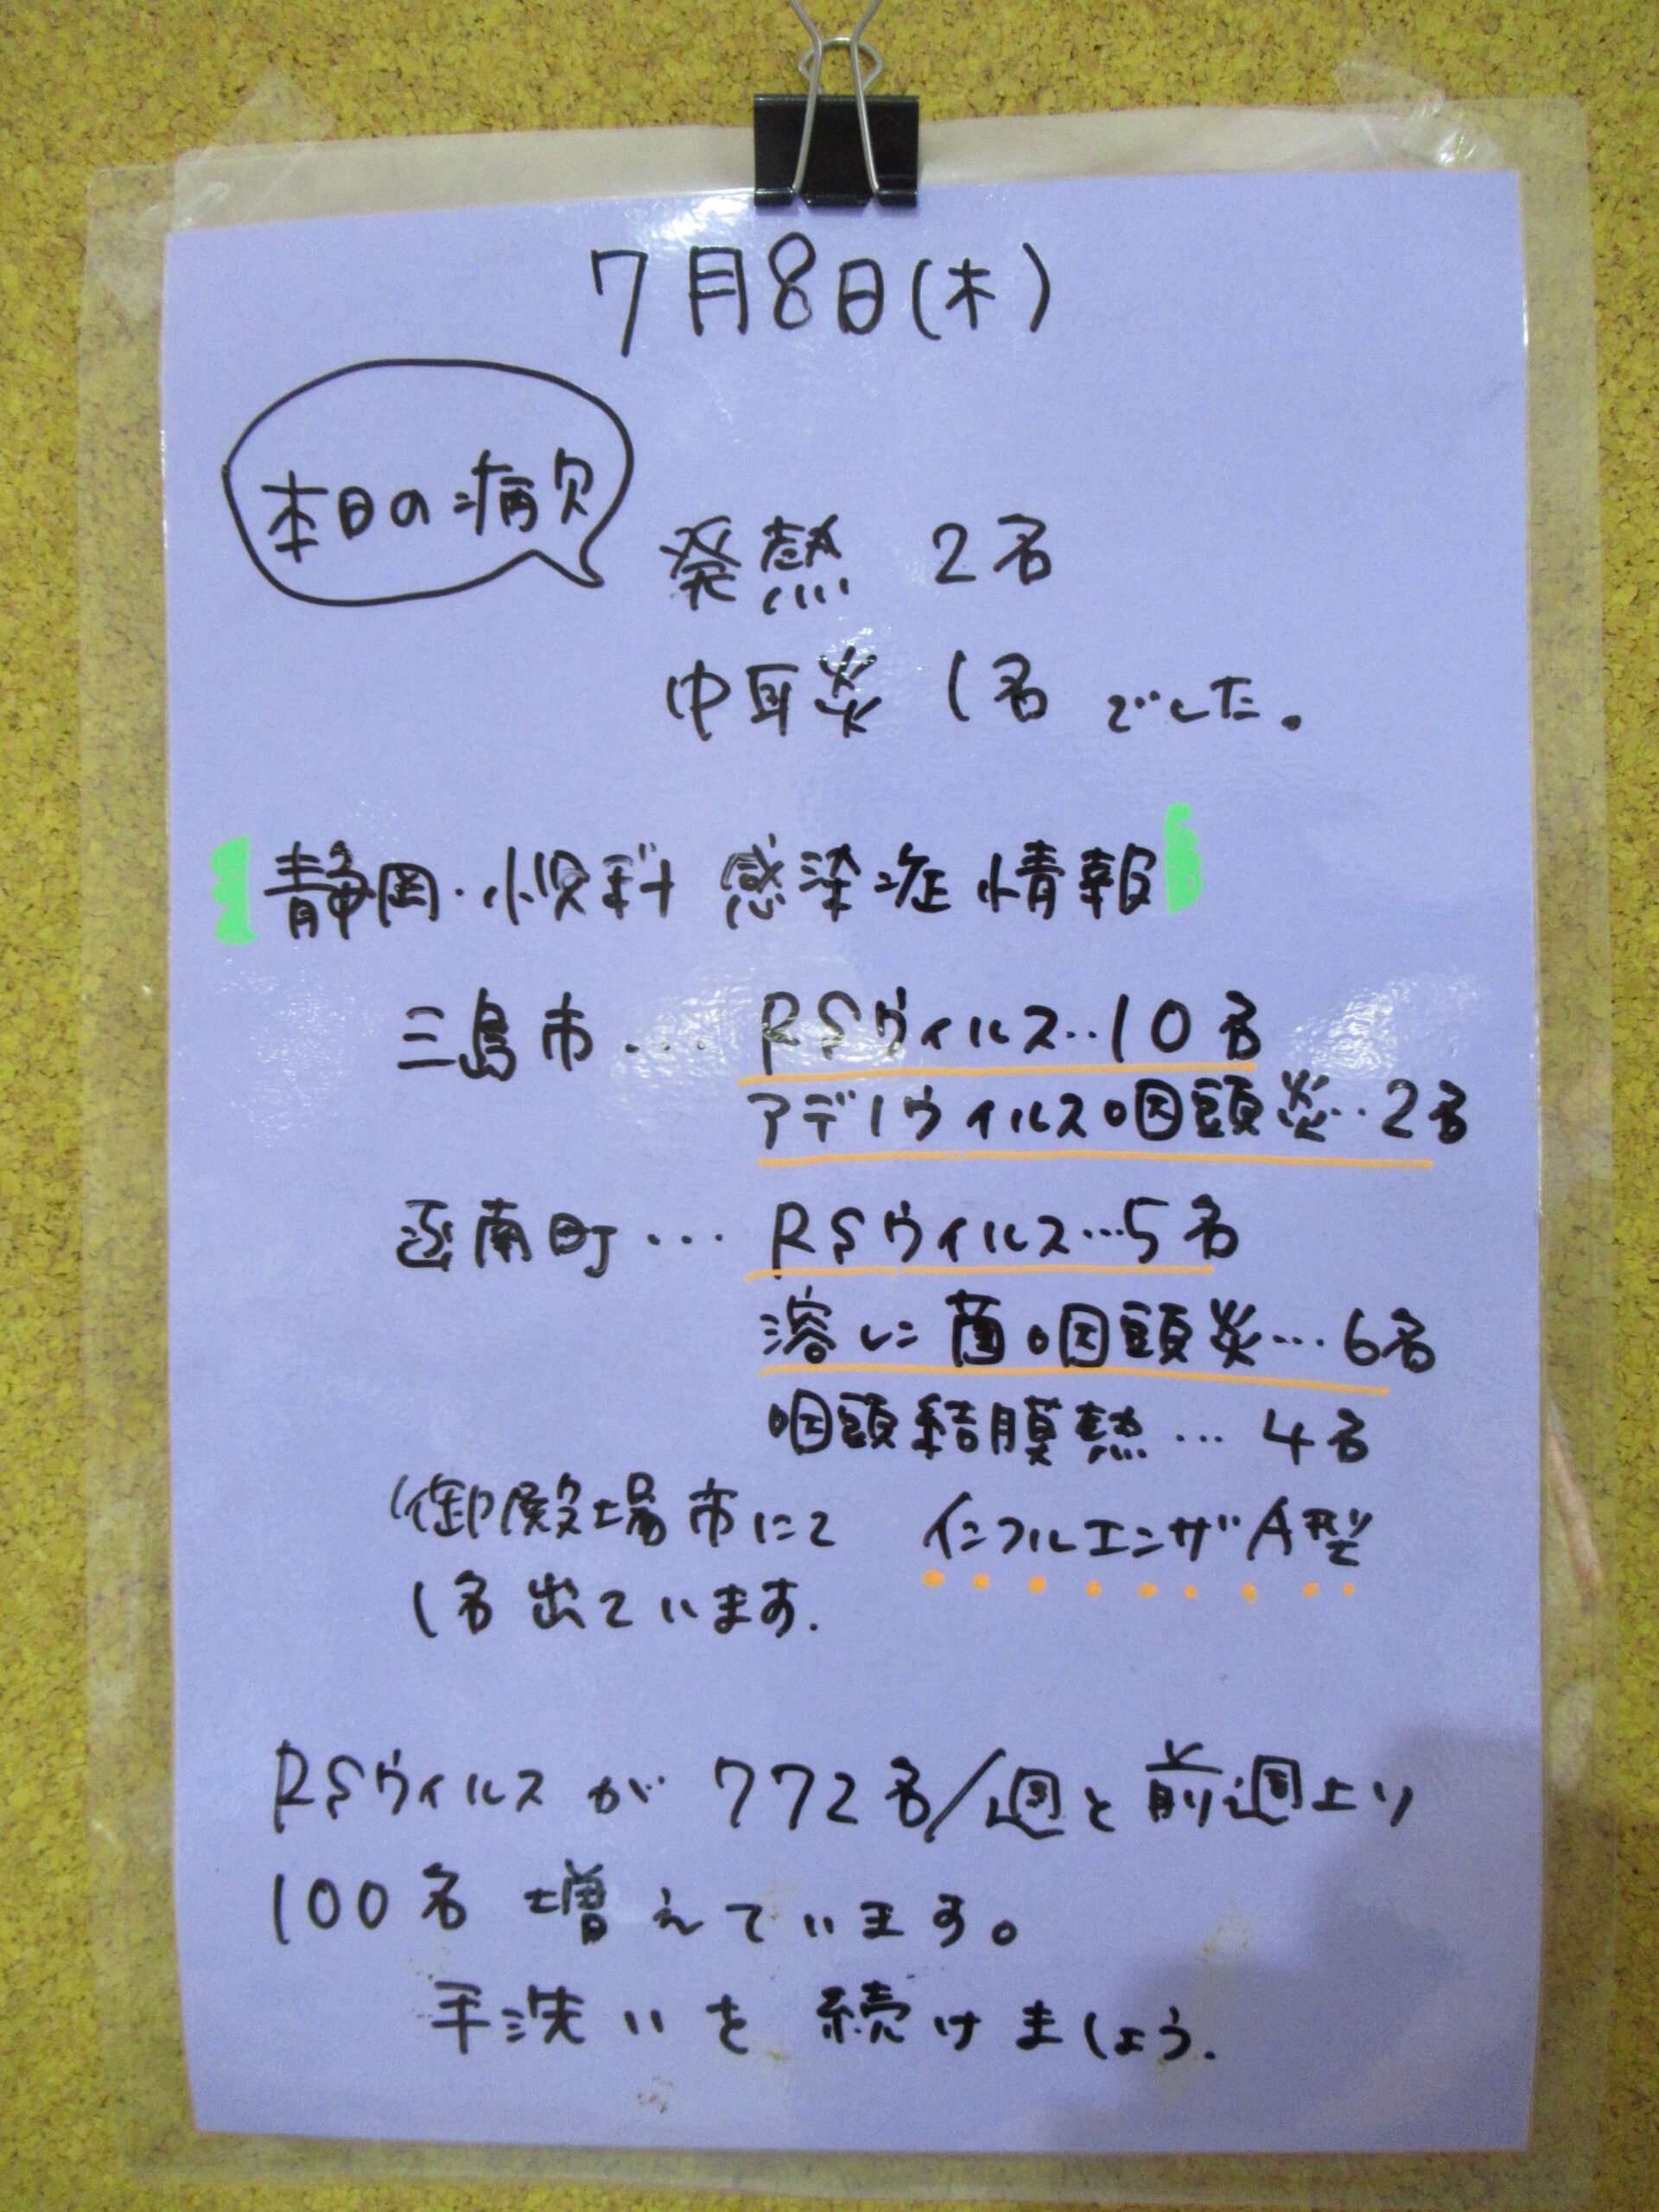 7月8日(木)
本日の病欠
発熱 2名
中耳炎 1名 でした。
静岡・小児科 感染症情報
三島市… RSウィルス‥10名
アデノウィルス咽頭炎‥2名
函南町… RSウィルス…5名
溶レン菌咽頭炎…6名
咽頭結膜熱…4名
御殿場市にて インフルエンザA型
1名出ています.
RSウィルスが 772名/週と前週より
100名 増えています。
手洗いを続けましょう.